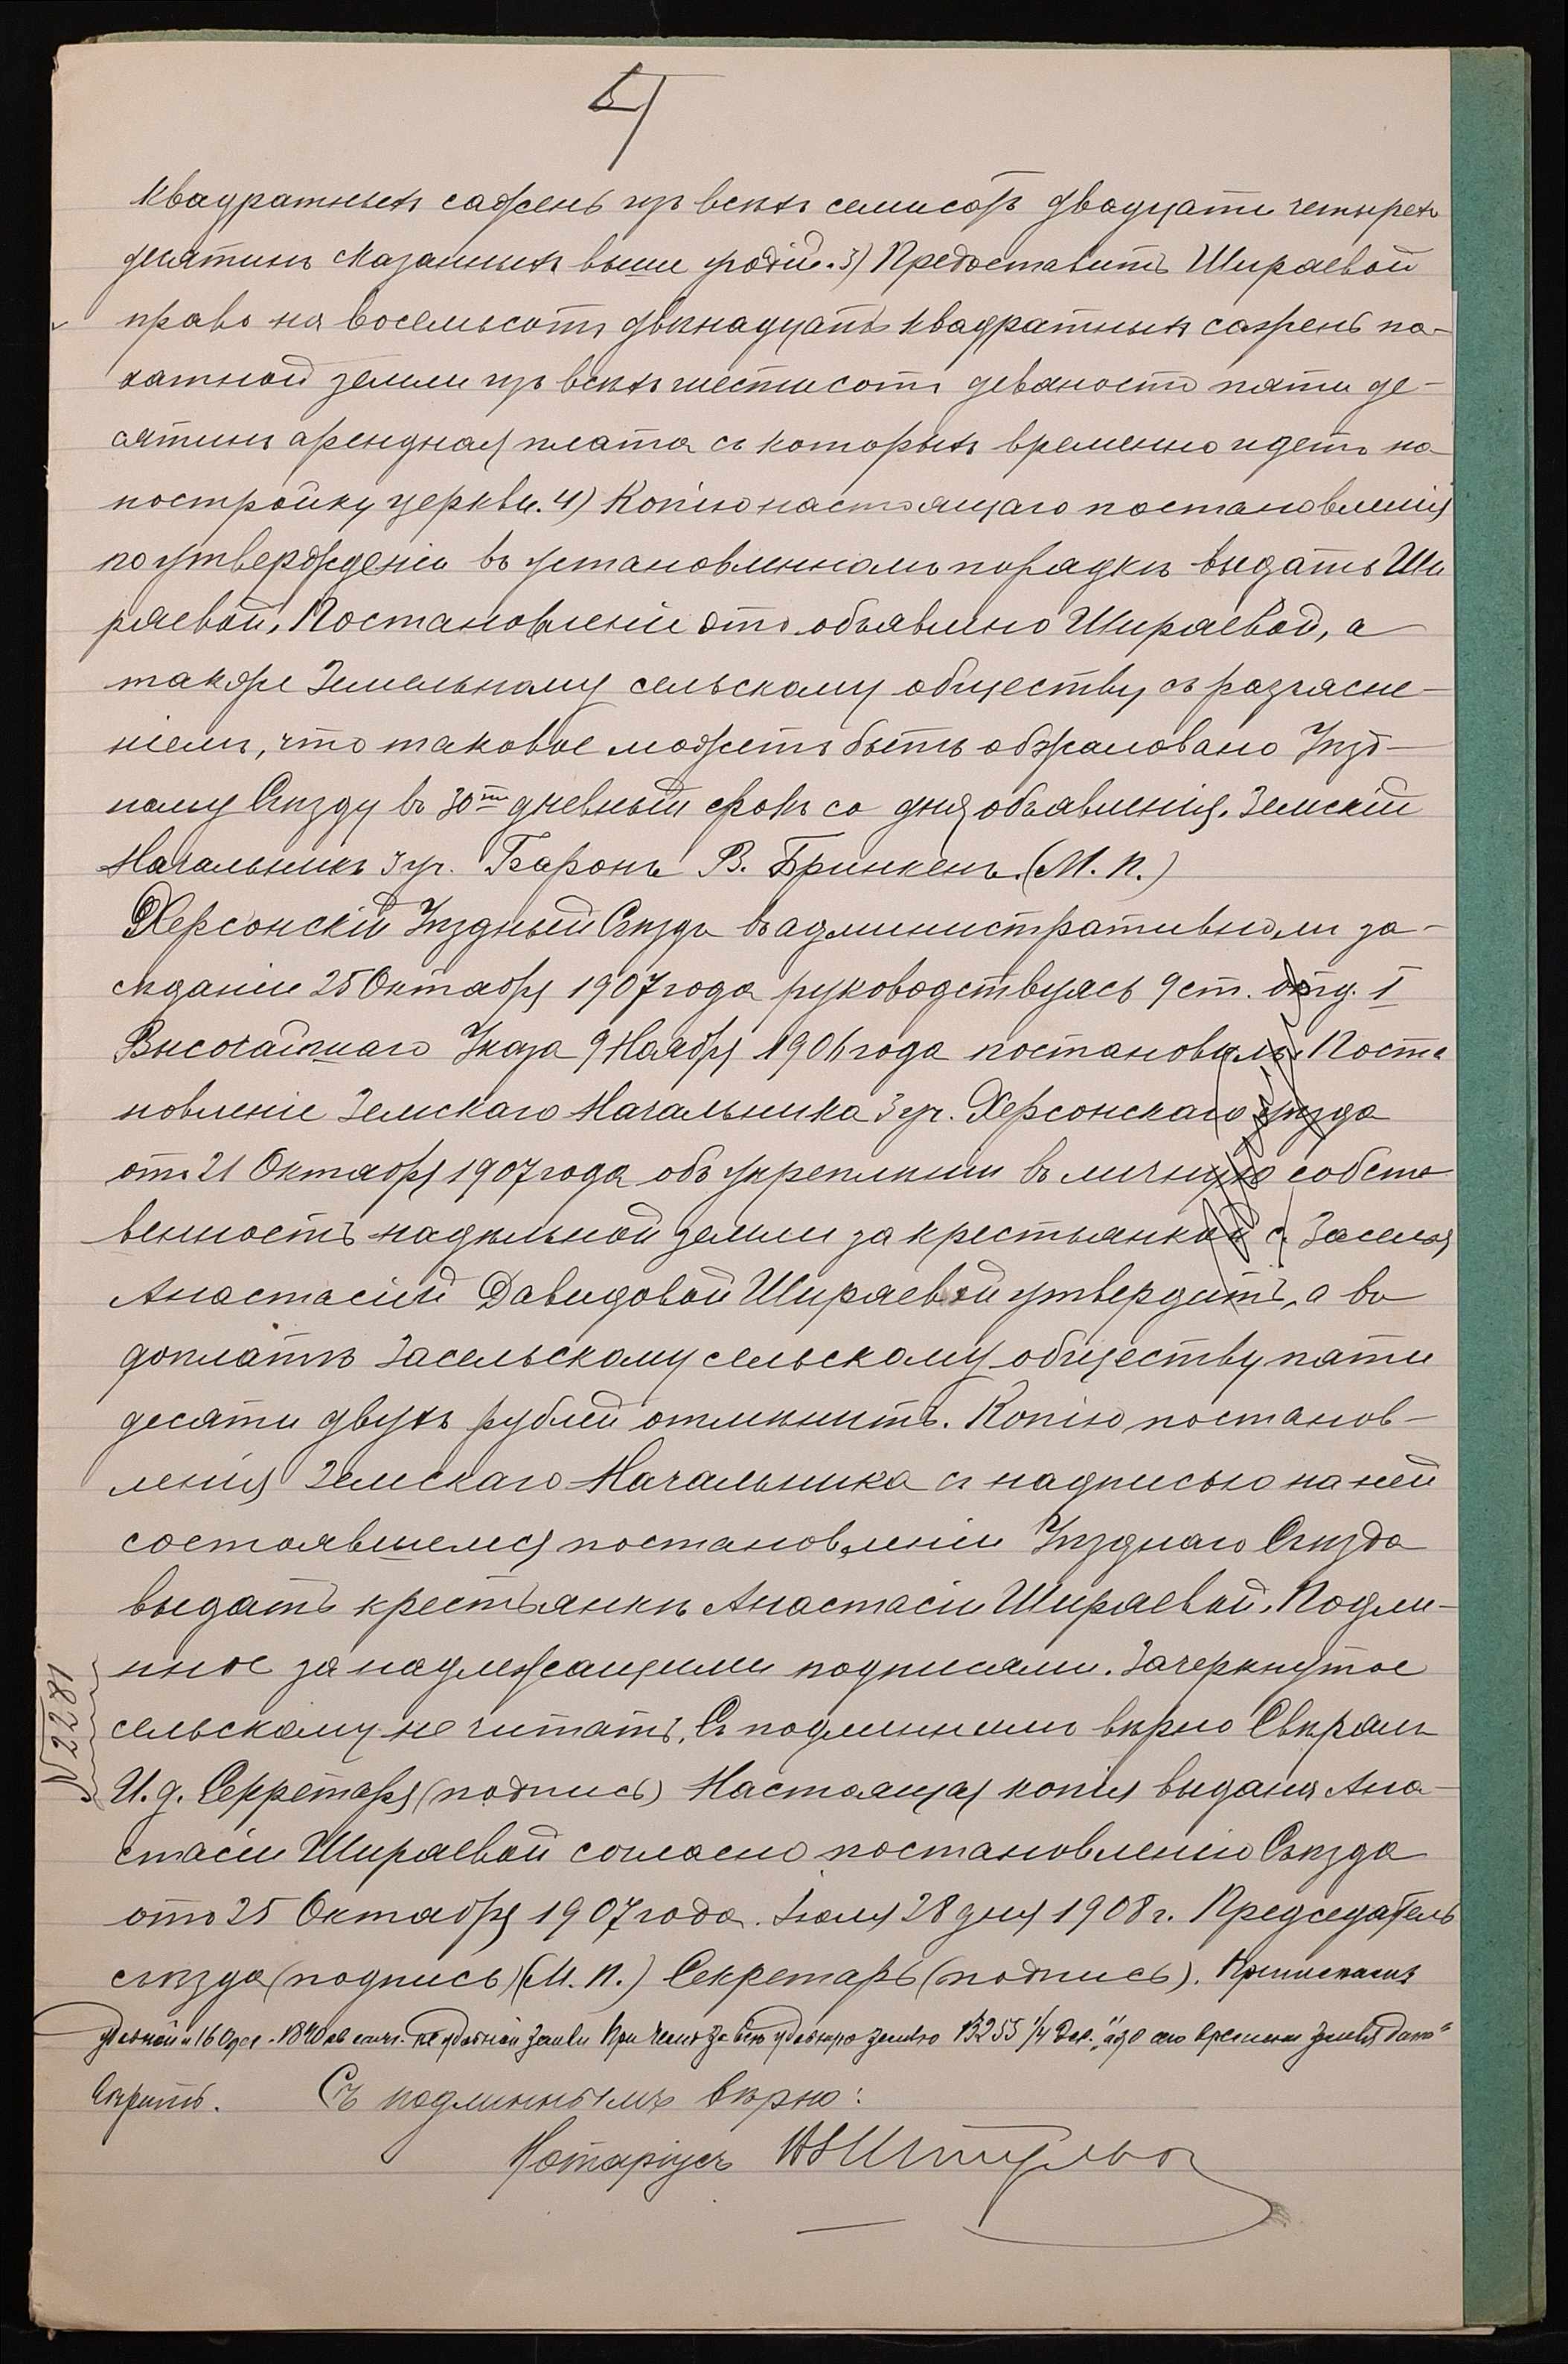 квадратныхъ сажень изъ всѣхъ семисотъ двадцати четырехъ
десятинъ сказанныхъ выше угодій. 3) Предоставить Шираевой
право на восемьсотъ двѣнадцать квадратныхъ сажень па-
хатной земли изъ всѣхъ шестисотъ девяносто пяти де-
сятинъ арендная плата съ которыхъ временно идетъ на
постройку церкви. 4) Копію настоящаго постановленія
по утвержденіи въ установленномъ порядкѣ выдать Ши
раевой. Постановленіе это объявлено Шираевой, а
также Земельному сельскому обществу съ разъясне-
ніемъ, что таковое можетъ быть обжаловано Уѣзд-
ному Съѣзду въ 30ти дневный срокъ со дня объявленія. Земскій
Начальникъ 3 уч. Баронъ В. Бринкенъ. (М. П.)
Херсонскій Уѣздный Съѣздъ въ административномъ за-
сѣданіи 25 Октября 1907 года руководствуясь 9 ст. отд. I
Высочайшаго Указа 9 Ноября 1906 года постановилъ: Поста
новленіе Земскаго Начальника 3 уч. Херсонскаго уѣзда
отъ 21 Октября 1907 года объ укрепленіи въ личную собст
венность надѣльной земли за крестьянкой с. Заселья
Анастасіей Давидовой Шираевой утвердить, а во
доплатѣ Засельскому сельскому обществу пяти
десяти двухъ рублей отмѣнить. Копію постанов-
ленія Земскаго Начальника съ надписью на ней
состоявшемся постановленіи Уѣзднаго Съѣзда
выдать крестьянкѣ Анастасіи Шираевой. Подли-
нное за надлежащими подписями. Зачеркнутое
сельскому не читать. Съ подлиннымъ вѣрно Свѣрялъ
И. д. Секретаря (подпись) Настоящая копія выдана Ана-
стасіи Шираевой согласно постановленію Съѣзда
отъ 25 Октября 1907 года. Іюля 28 дня 1908 г. Председатель
съѣзда (подпись) (М. П.) Секретарь (подпись).
удобной и 16 0 дес. 1840 кв саж. неудобной земли При чемъ за всю удобную землю 13255 1/4 дес.
вѣрить. Съ подлиннымъ вѣрно:
Нотаріусъ
№ 2281